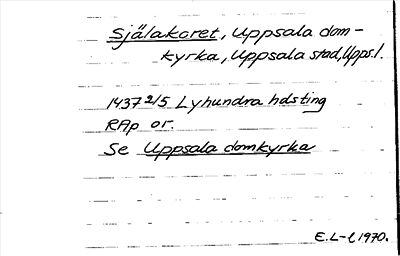 Själakoret, Uppsala dom-
kyrka, Uppsala stad, Upps.l.
1437 2/5 Lyhundra hdsting
RAp or.
Se Uppsala domkyrka
E.L-l 1970.